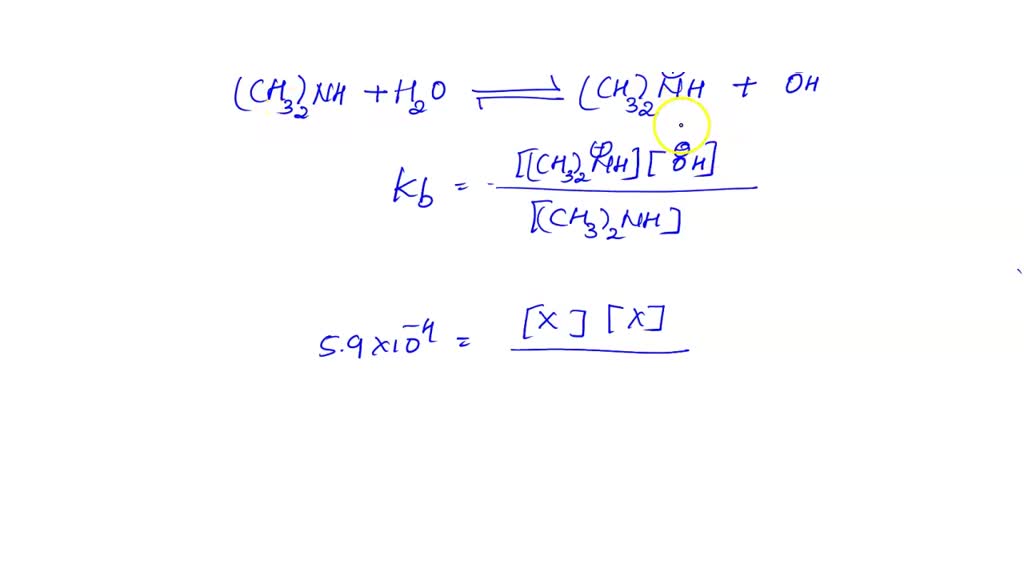 (CH₃)₂NH + H₂O ⇌ (CH₃)₂N̈H + ŌH
Kb = [(CH₃)₂N⊕H][⊖OH] / [(CH₃)₂NH]
5.9×10⁻⁴ = [X] [X]